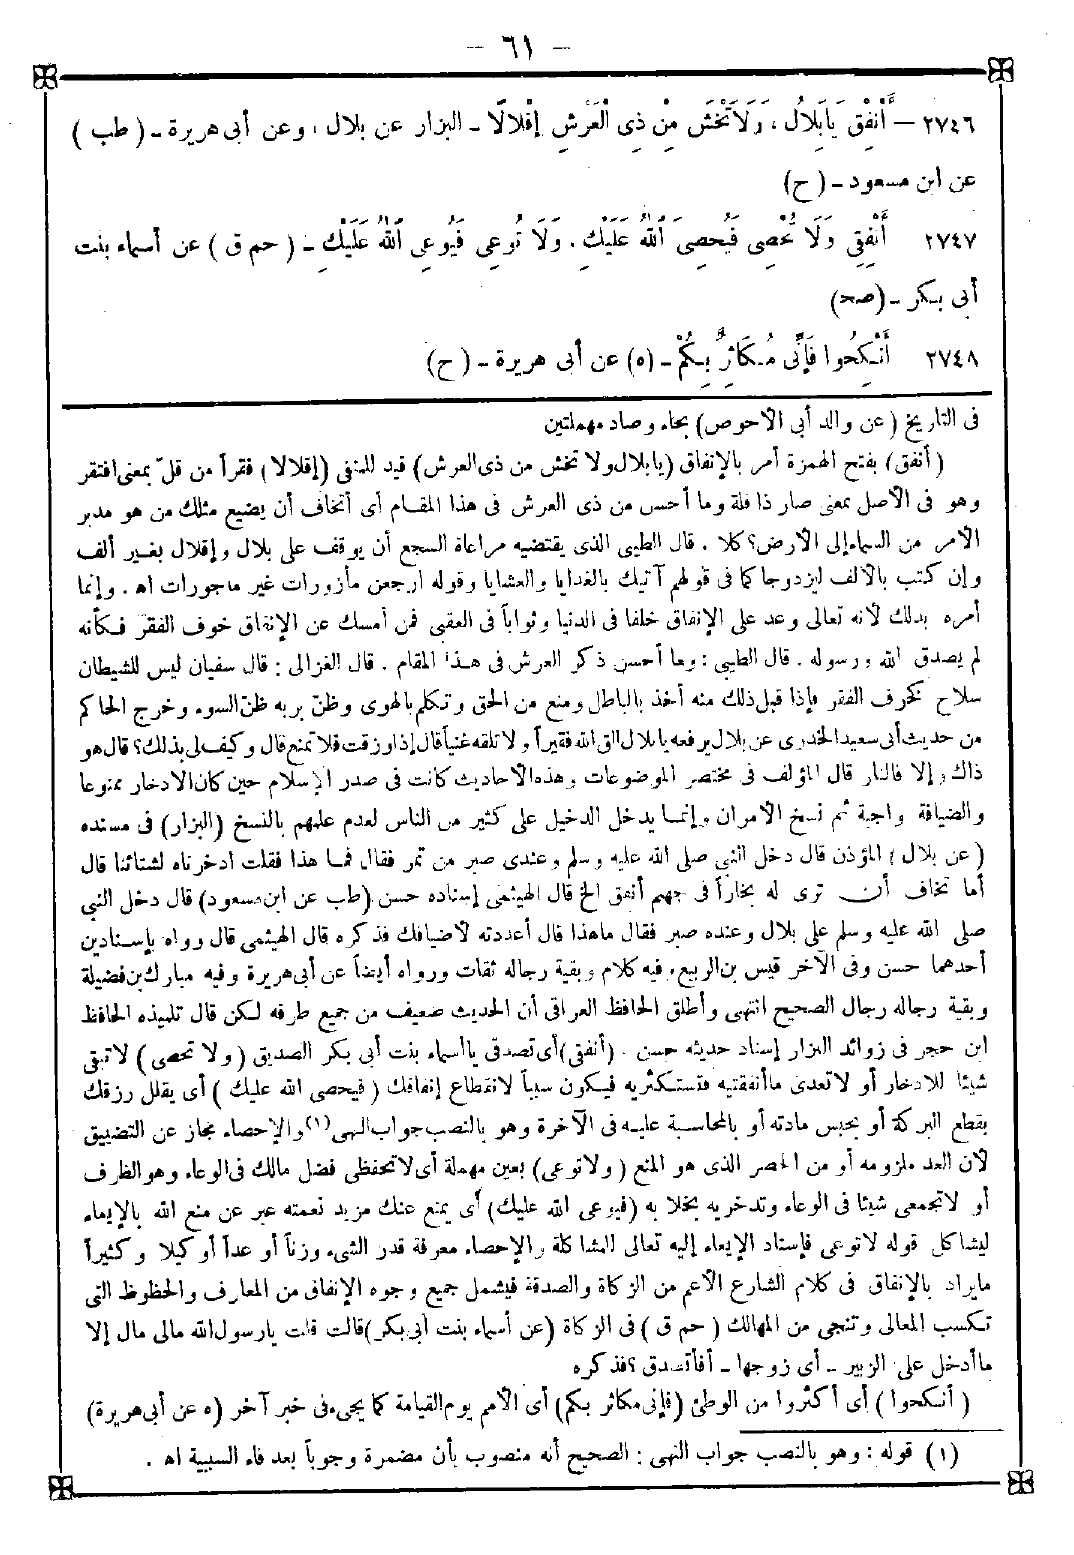 - ٦١ -
٢٧٤٦ - أَنْفِقْ يَا بِلَالُ، وَلَا تَخْشَ مِنْ ذِي الْعَرْشِ إِقْلَالًا - البزار عن بلال، وعن أبى هريرة - (طب)
عن ابن مسعود - (ح)
٢٧٤٧ أَنْفِقِي وَلَا تُحْصِى فَيُحْصِىَ اللهُ عَلَيْكِ، وَلَا تُوعِى فَيُوعِىَ اللهُ عَلَيْكِ - (حم ق) عن أسماء بنت
أبى بكر - (صح)
٢٧٤٨ أَنْكِحُوا فَإِنِّى مُكَاثِرٌ بِكُمْ - (ه) عن أبى هريرة - (ح)
فى التاريخ (عن والد أبى الأحوص) بحاء وصاد مهملتين
(أنفق) بفتح الهمزة أمر بالإنفاق (يا بلال ولا تخش من ذى العرش) قيد للمنفى (إقلالا) فقرأ من قلّ بمعنى افتقر
وهو فى الأصل بمعنى صار ذا قلة وما أحسن من ذى العرش فى هذا المقام أى أتخاف أن يضيع مثلك من هو مدبر
الأمر من السماء إلى الأرض؟ كلا . قال الطيبى الذى يقتضيه مراعاة السجع أن يوقف على بلال وإقلال بغير ألف
وإن كتب بالألف ليزدوجا كما فى قولهم آتيك بالغدايا والعشايا وقوله ارجعن مأزورات غير مأجورات اه . وإنما
أمره بذلك لأنه تعالى وعد على الإنفاق خلفا فى الدنيا وثواباً فى العقبى فمن أمسك عن الإنفاق خوف الفقر فكأنه
لم يصدق الله ورسوله . قال الطيبى : وما أحسن ذكر العرش فى هذا المقام . قال الغزالى : قال سفيان ليس للشيطان
سلاح كخوف الفقر فإذا قبل ذلك منه أخذ بالباطل ومنع من الحق وتكلم بالهوى وظنّ بربه ظنّ السوء وخرج الحاكم
من حديث أبى سعيد الخدرى عن بلال يرفعه يا بلال الق الله فقيراً ولا تلقه غنياً قال إذا رزقت فلا تمنع قال وكيف لى بذلك؟ قال هو
ذاك وإلا فالنار قال المؤلف فى مختصر الموضوعات وهذه الأحاديث كانت فى صدر الإسلام حين كان الادخار ممنوعا
والضيافة واجبة ثم نسخ الأمران وإنما يدخل الدخيل على كثير من الناس لعدم علمهم بالنسخ (البزار) فى مسنده
(عن بلال) المؤذن قال دخل النبى صلى الله عليه وسلم وعندى صبر من تمر فقال فما هذا فقلت ادخرناه لشتائنا قال
أما تخاف أن ترى له بخاراً فى جهنم أنفق الخ قال الهيثمى إسناده حسن (طب عن ابن مسعود) قال دخل النبى
صلى الله عليه وسلم على بلال وعنده صبر فقال ماهذا قال أعددته لأضيافك فذكره قال الهيثمى قال رواه بإسنادين
أحدهما حسن وفى الآخر قيس بن الربيع، فيه كلام وبقية رجاله ثقات ورواه أيضاً عن أبى هريرة وفيه مبارك بن فضيلة
وبقية رجاله رجال الصحيح انتهى وأطلق الحافظ العراقى أن الحديث ضعيف من جميع طرقه لكن قال تلميذه الحافظ
ابن حجر فى زوائد البزار إسناد حديثه حسن . (أنفقى) أى تصدقى يا أسماء بنت أبى بكر الصديق (ولا تحصى) لا تبقى
شيئا للادخار أو لا تعدى ما أنفقتيه فتستكثريه فيكون سبباً لانقطاع إنفاقك (فيحصى الله عليك) أى يقلل رزقك
بقطع البركة أو بحبس مادته أو بالمحاسبة عليه فى الآخرة وهو بالنصب جواب النهى (١) والإحصاء مجاز عن التضييق
لأن العد ملزومه أو من الحصر الذى هو المنع (ولا توعى) بعين مهملة أى لا تحفظى فضل مالك فى الوعاء وهو الظرف
أو لا تجمعى شيئا فى الوعاء وتدخريه بخلا به (فيوعى الله عليك) أى يمنع عنك مزيد نعمته عبر عن منع الله بالإيعاء
ليشاكل قوله لا توعى فإسناد الإيعاء إليه تعالى للمشاكلة والإحصاء معرفة قدر الشىء وزناً أو عداً أو كيلا وكثيراً
ما يراد بالإنفاق فى كلام الشارع الأعم من الزكاة والصدقة فيشمل جميع وجوه الإنفاق من المعارف والحظوظ التى
تكسب المعالى وتنجى من المهالك (حم ق) فى الزكاة (عن أسماء بنت أبى بكر) قالت قلت يا رسول الله مالى مال إلا
ما أدخل على الزبير - أى زوجها - أفأتصدق؟ فذكره
(أنكحوا) أى أكثروا من الوطئ (فإنى مكاثر بكم) أى الأمم يوم القيامة كما يجىء فى خبر آخر (ه عن أبى هريرة)
(١) قوله : وهو بالنصب جواب النهى : الصحيح أنه منصوب بأن مضمرة وجوباً بعد فاء السببية اه .